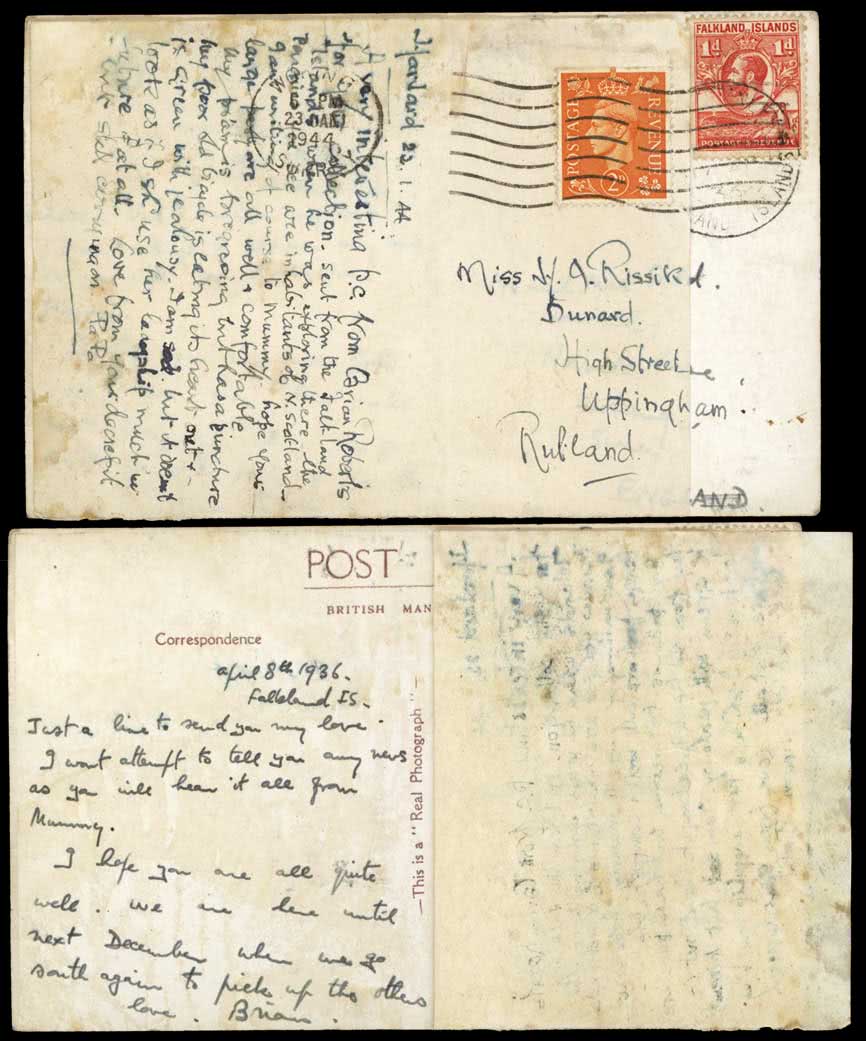 23.1.44
A very interesting p.c. from Brian Roberts
for collection. sent from the Falkland
Islands when he was exploring there. The
are inhabitants of N. Scotland.
I am writing of course to Mummy. hope you
large are all well & comfortable
My is but has a puncture
My poor old bicycle is eating its heart out &
is green with jealousy. I am but it doesnt
look as if I shl use her much in
future if at all. Love from your
PaPa
23 JAN
1944
FALKLAND ISLANDS
1d 1d
POSTAGE & REVENUE
POSTAGE REVENUE
2D
ISLANDS
Miss J. Rissik
Dunard.
High Street
Uppingham
Rutland
AND.
POST
BRITISH MAN
Correspondence
April 8th 1936.
Falkland Is.
Just a line to send you my love.
I wont attempt to tell you any news
as you will hear it all from
Mummy.
I hope you are all quite
well. We are here until
next December when we go
south again to pick up the others
love. Brian.
—This is a "Real Photograph"—